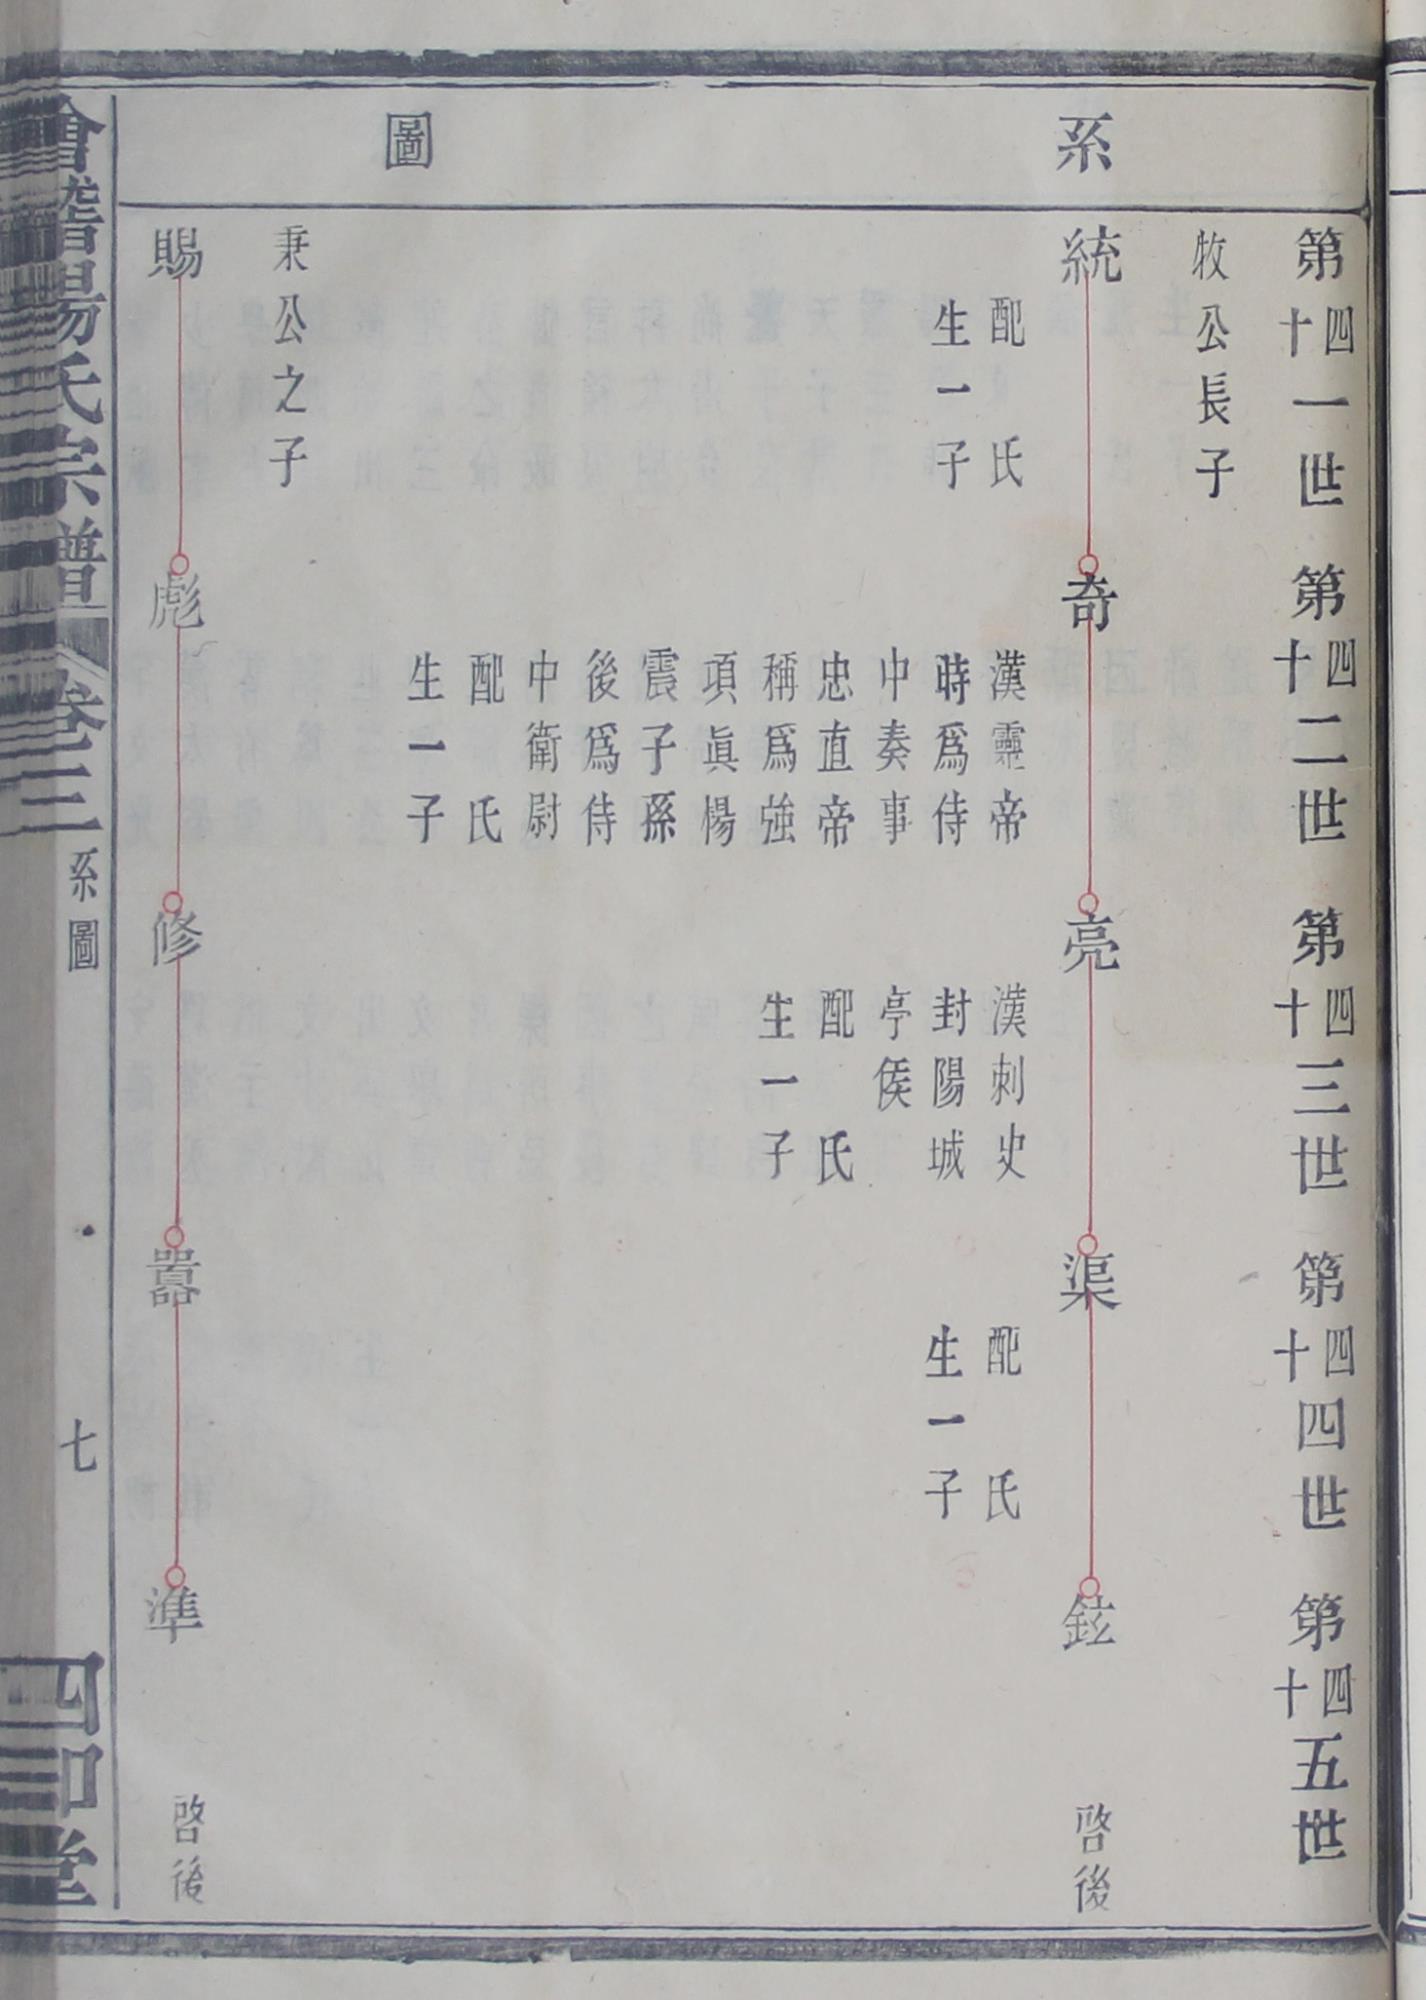 系圖
第四十一世
第四十二世
第四十三世
第四十四世
第四十五世
牧公長子
統
配氏
生一子
奇
漢靈帝
時為侍
中奏事
忠直帝
稱為強
項眞楊
震子孫
後為侍
中衛尉
配氏
生一子
亮
漢刺史
封陽城
亭侯
配氏
生一子
渠
配氏
生一子
鉉
啓後
秉公之子
賜
彪
修
囂
準
啓後
會稽楊氏宗譜
卷三
系圖
七
四知堂